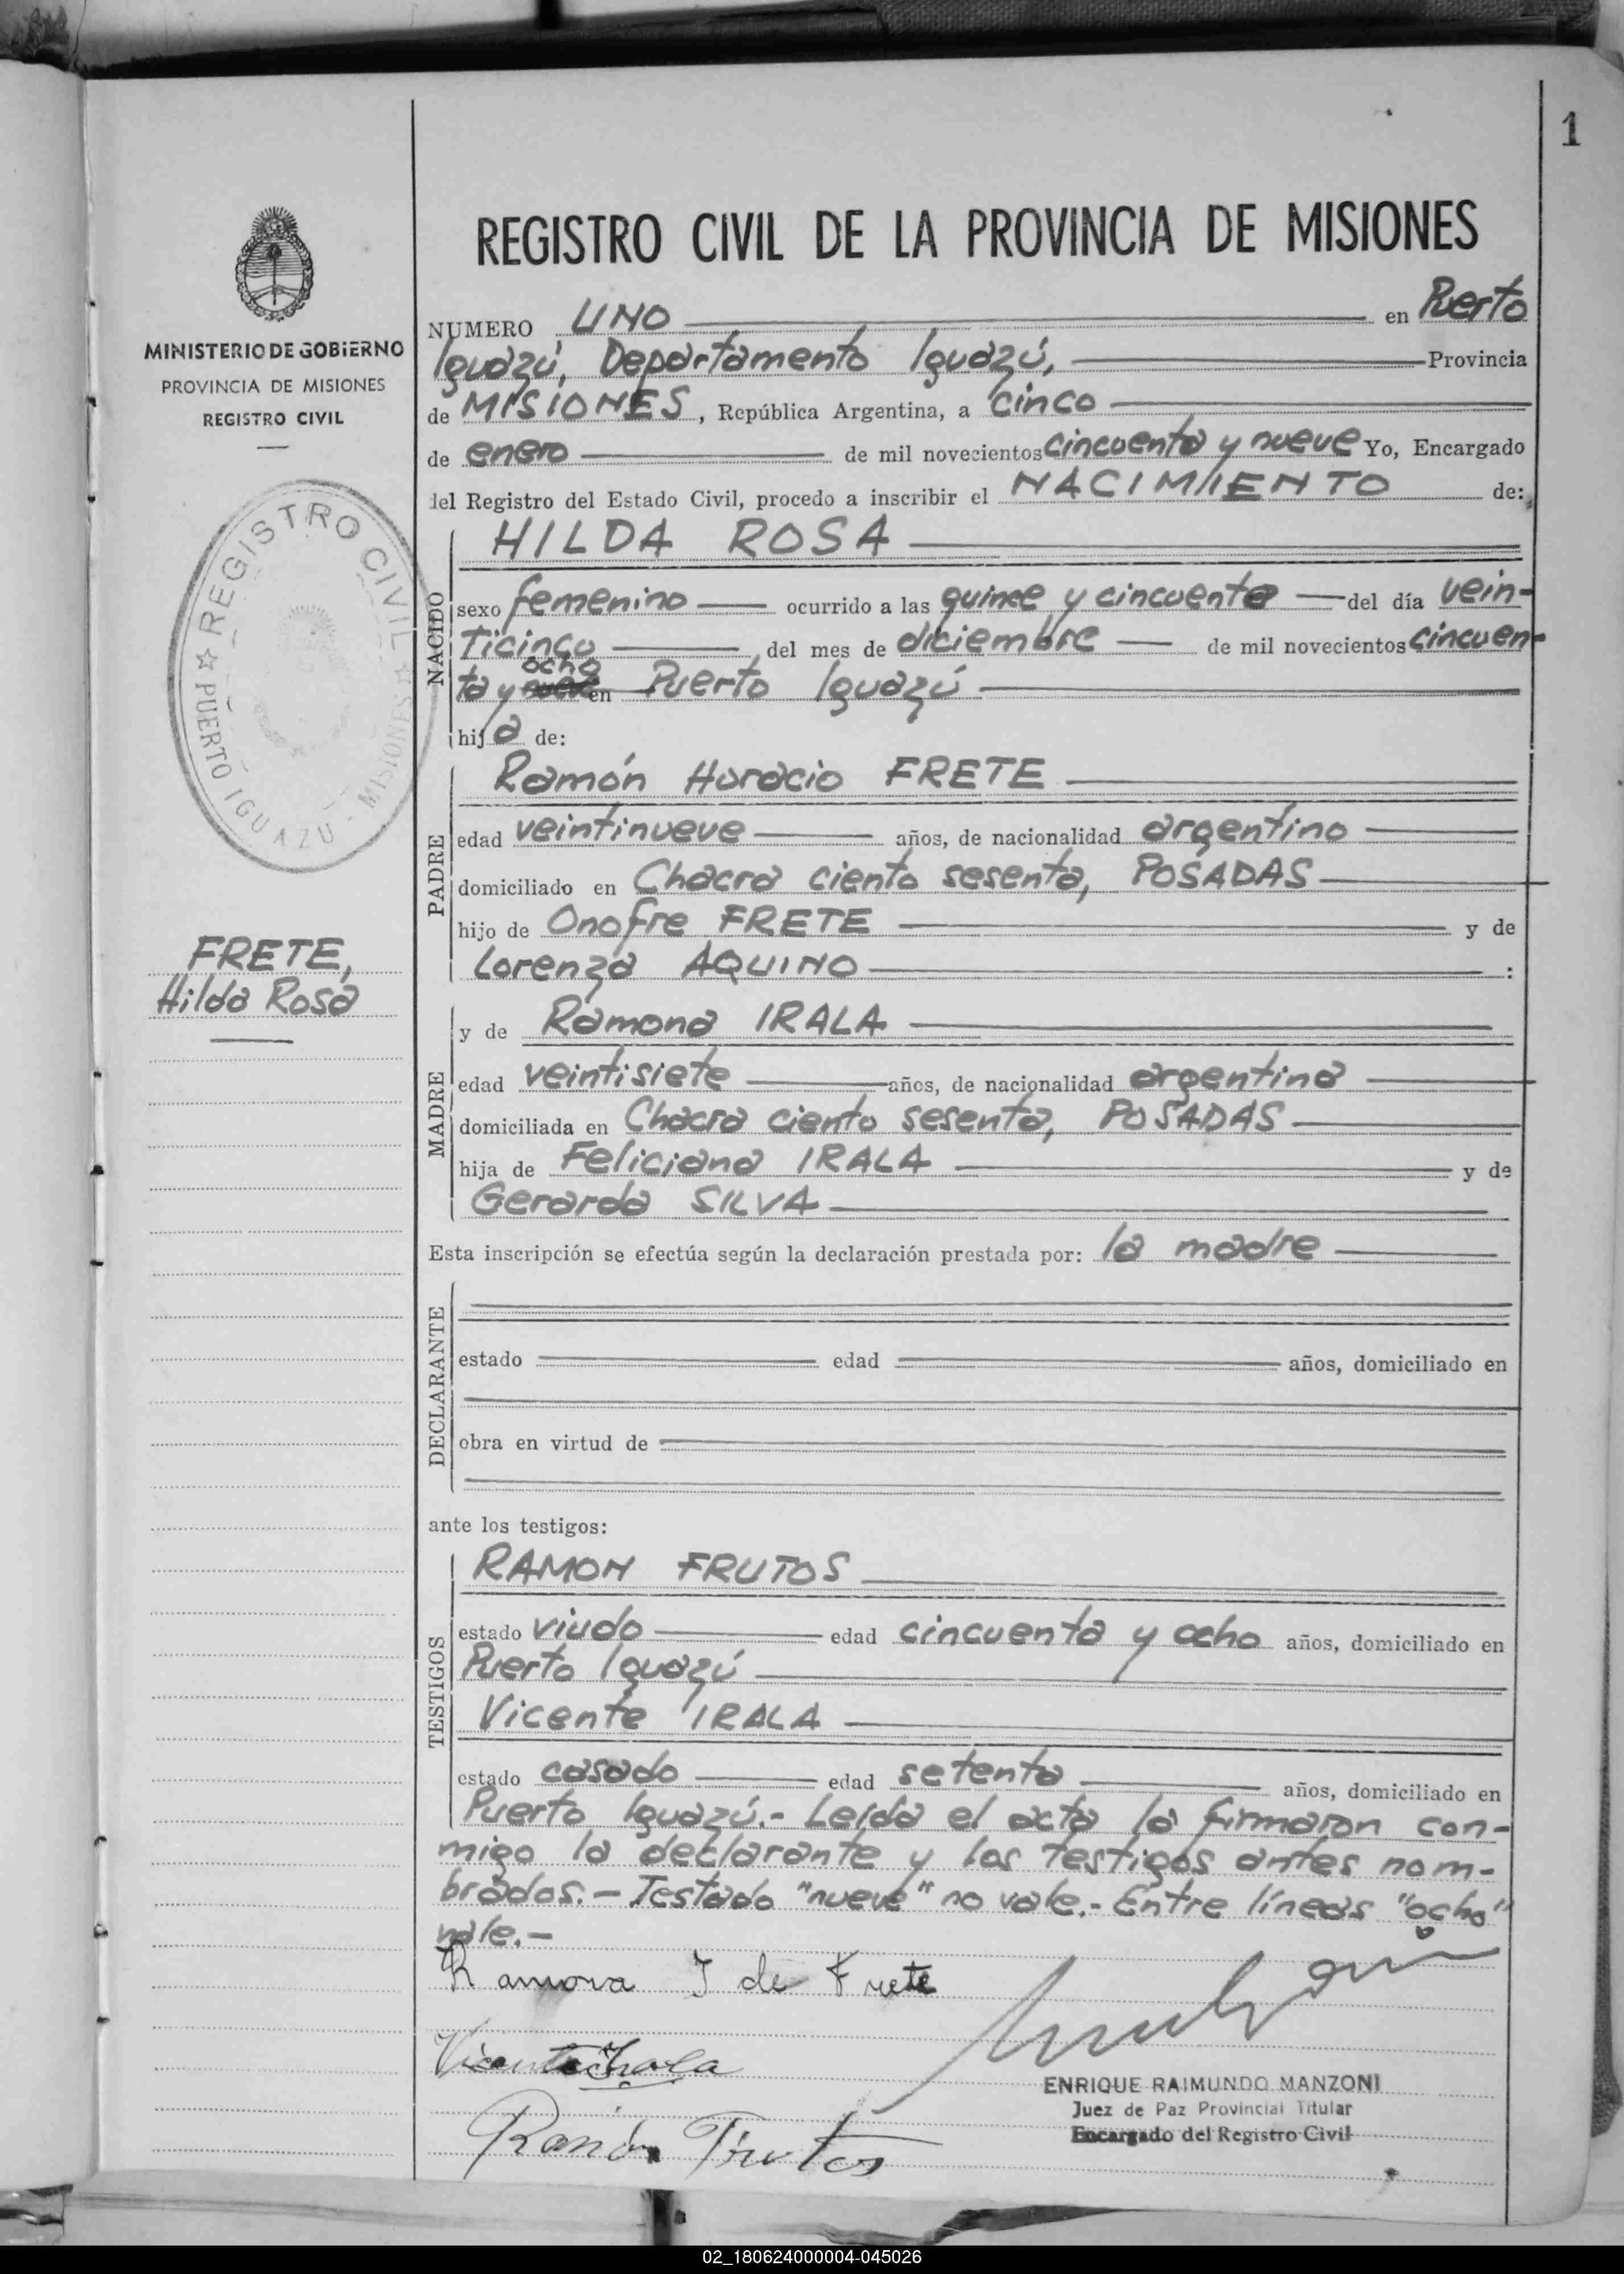 1
REGISTRO CIVIL DE LA PROVINCIA DE MISIONES
MINISTERIO DE GOBIERNO
PROVINCIA DE MISIONES
REGISTRO CIVIL
REGISTRO CIVIL
☆ PUERTO IGUAZU - MISIONES ☆
FRETE,
Hilda Rosa
NUMERO UNO en Puerto
Iguazú, Departamento Iguazú, Provincia
de MISIONES, República Argentina, a cinco
de enero de mil novecientos cincuenta y nueve Yo, Encargado
del Registro del Estado Civil, procedo a inscribir el NACIMIENTO de:
NACIDO
HILDA ROSA
sexo femenino ocurrido a las quince y cincuenta del día vein-
ticinco del mes de diciembre de mil novecientos cincuen-
ocho
ta y nueve en Puerto Iguazú
hija de:
PADRE
Ramón Horacio FRETE
edad veintinueve años, de nacionalidad argentino
domiciliado en Chacra ciento sesenta, POSADAS
hijo de Onofre FRETE y de
Lorenza AQUINO :
MADRE
y de Ramona IRALA
edad veintisiete años, de nacionalidad argentina
domiciliada en Chacra ciento sesenta, POSADAS
hija de Feliciana IRALA y de
Gerarda SILVA
Esta inscripción se efectúa según la declaración prestada por: la madre
DECLARANTE
estado edad años, domiciliado en
obra en virtud de
ante los testigos:
TESTIGOS
RAMON FRUTOS
estado viudo edad cincuenta y ocho años, domiciliado en
Puerto Iguazú
Vicente IRALA
estado casado edad setenta años, domiciliado en
Puerto Iguazú.- Leída el acta la firmaron con-
migo la declarante y los testigos antes nom-
brados.- Testado "nueve" no vale.- Entre líneas "ocho"
vale.-
Ramona I de Frete
Vicente Irala
Ramón Frutos
ENRIQUE RAIMUNDO MANZONI
Juez de Paz Provincial Titular
Encargado del Registro Civil
02_180624000004-045026